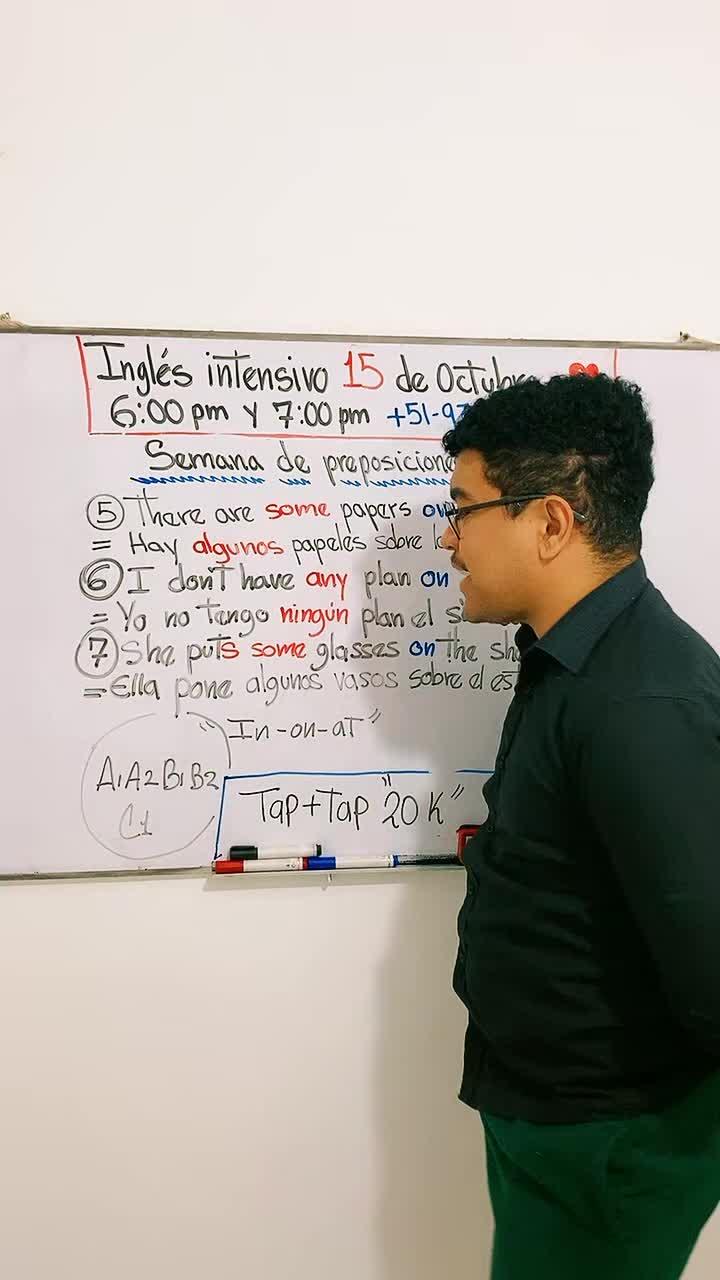 Inglés intensivo 15 de Octubre
6:00 pm y 7:00 pm +51-9
Semana de preposicione
⑤ There are some papers on
= Hay algunos papeles sobre
⑥ I don't have any plan on
= Yo no tengo ningún plan el
⑦ She puts some glasses on the
= Ella pone algunos vasos sobre el
"In-on-at"
A1 A2 B1 B2
C1
Tap+Tap "20K"